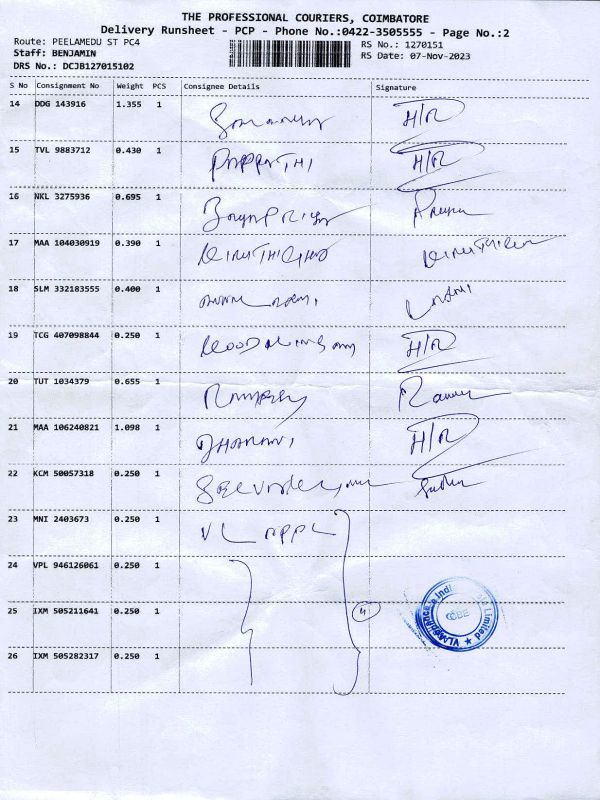 THE PROFESSIONAL COURIERS, COIMBATORE
Delivery Runsheet - PCP - Phone No.:0422-3505555 - Page No.:2
Route: PEELAMEDU ST PC4
RS No.: 1270151
Staff: BENJAMIN
RS Date: 07-Nov-2023
DRS No.: DCJB127015102
S No Consignment No Weight PCS Consignee Details Signature
14 DDG 143916 1.355 1 H/R
15 TVL 9883712 0.430 1 H/R
16 NKL 3275936 0.695 1
17 MAA 104030919 0.390 1
18 SLM 332183555 0.400 1
19 TCG 407098844 0.250 1 H/R
20 TUT 1034379 0.655 1
21 MAA 106240821 1.098 1 DHARANI H/R
22 KCM 50057318 0.250 1
23 MNI 2403673 0.250 1 VL APPL
24 VPL 946126061 0.250 1
25 IXM 505211641 0.250 1 4
26 IXM 505282317 0.250 1